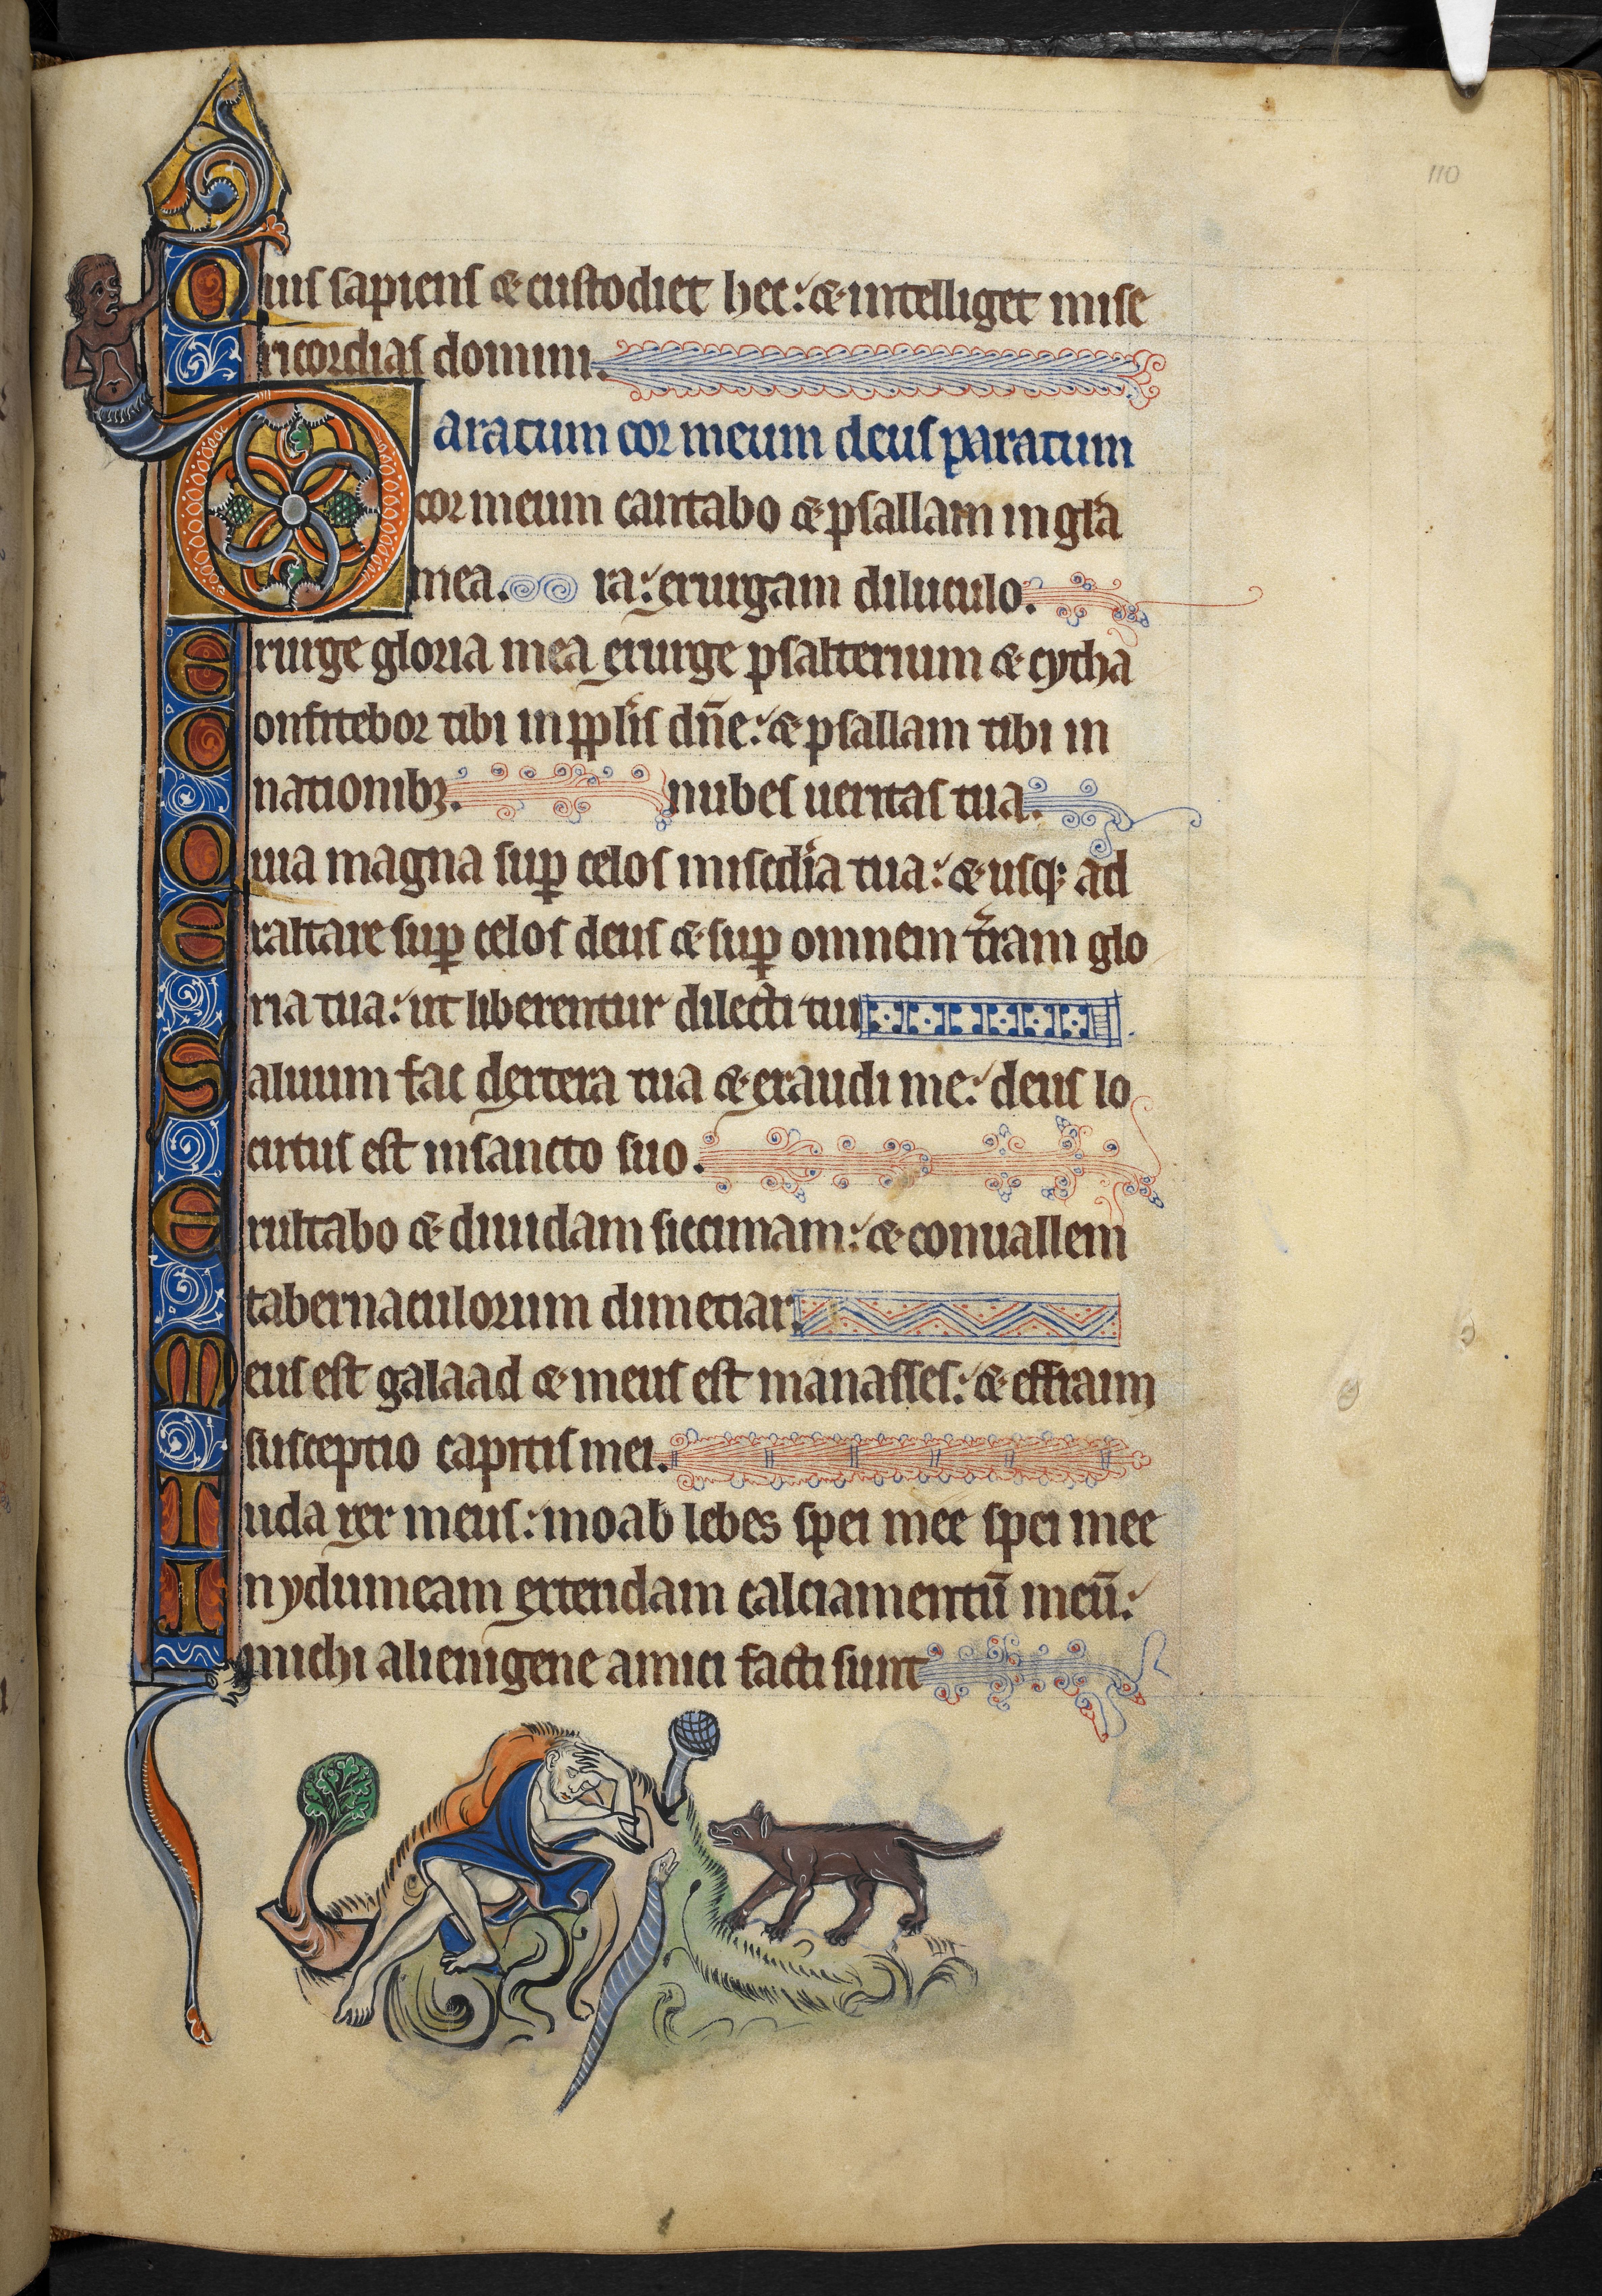 110
Quis sapiens & custodiet hec: & intelliget mise
ricordias domini.
Paratum cor meum deus paratum
cor meum cantabo & psallam in gl̄a
mea. ra: exurgam diluculo.
Exurge gloria mea exurge psalterium & cytha
Confitebor tibi in pp̄lis dn̄e: & psallam tibi in
nationibꝫ. nubes ueritas tua.
Quia magna sup̱ celos misc̄dia tua: & usqꝫ ad
Exaltare sup̱ celos deus & sup̱ omnem t̄ram glo
ria tua: ut liberentur dilecti tui.
Saluum fac dextera tua & exaudi me: deus lo
cutus est in sancto suo.
Exultabo & diuidam siccimam: & conuallem
tabernaculorum dimetiar.
Meus est galaad & meus est manasses: & effraim
susceptio capitis mei.
Iuda rex meus: moab lebes spei mee spei mee
In ydumeam extendam calciamentū meū:
michi alienigene amici facti sunt